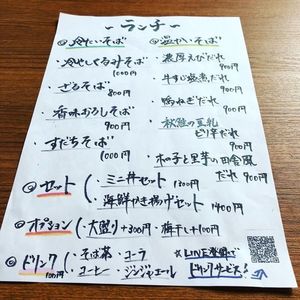 ランチ
冷たいそば
・冷やしくるみそば
1000円
・ざるそば
800円
・香味おろしそば
900円
・すだちそば
1000円
温かいそば
・濃厚えびだれ
900円
・牛すじ煮だれ
900円
・鴨ねぎだれ
900円
・秋鮭の豆乳
ピリ辛だれ
900円
・木の子と里芋の田舎風
だれ 900円
セット
・ミニ丼セット 1300円
・海鮮かき揚げセット 1400円
オプション
・大盛り+300円 ・梅干し+100円
ドリンク
100円
・そば茶 ・コーラ
・コーヒー ・ジンジャエール
※LINE登録で
ドリンクサービス!